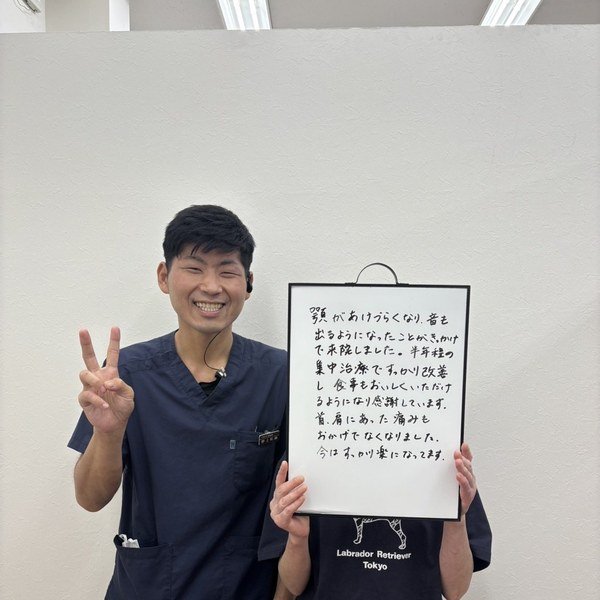 顎があけづらくなり、音も
出るようになったことがきっかけ
で来院しました。半年程の
集中治療ですっかり改善
し 食事もおいしくいただけ
るようになり感謝しています。
首、肩にあった痛みも
おかげでなくなりました。
今はすっかり楽になってます。
Labrador Retriever
Tokyo